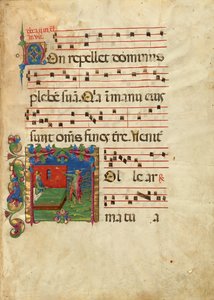 Non repellet dominus
plebē suā. Q̄a ī manu eius
sunt om̄s fines tr̄e. Uenite
Ol le ar
ma tu a